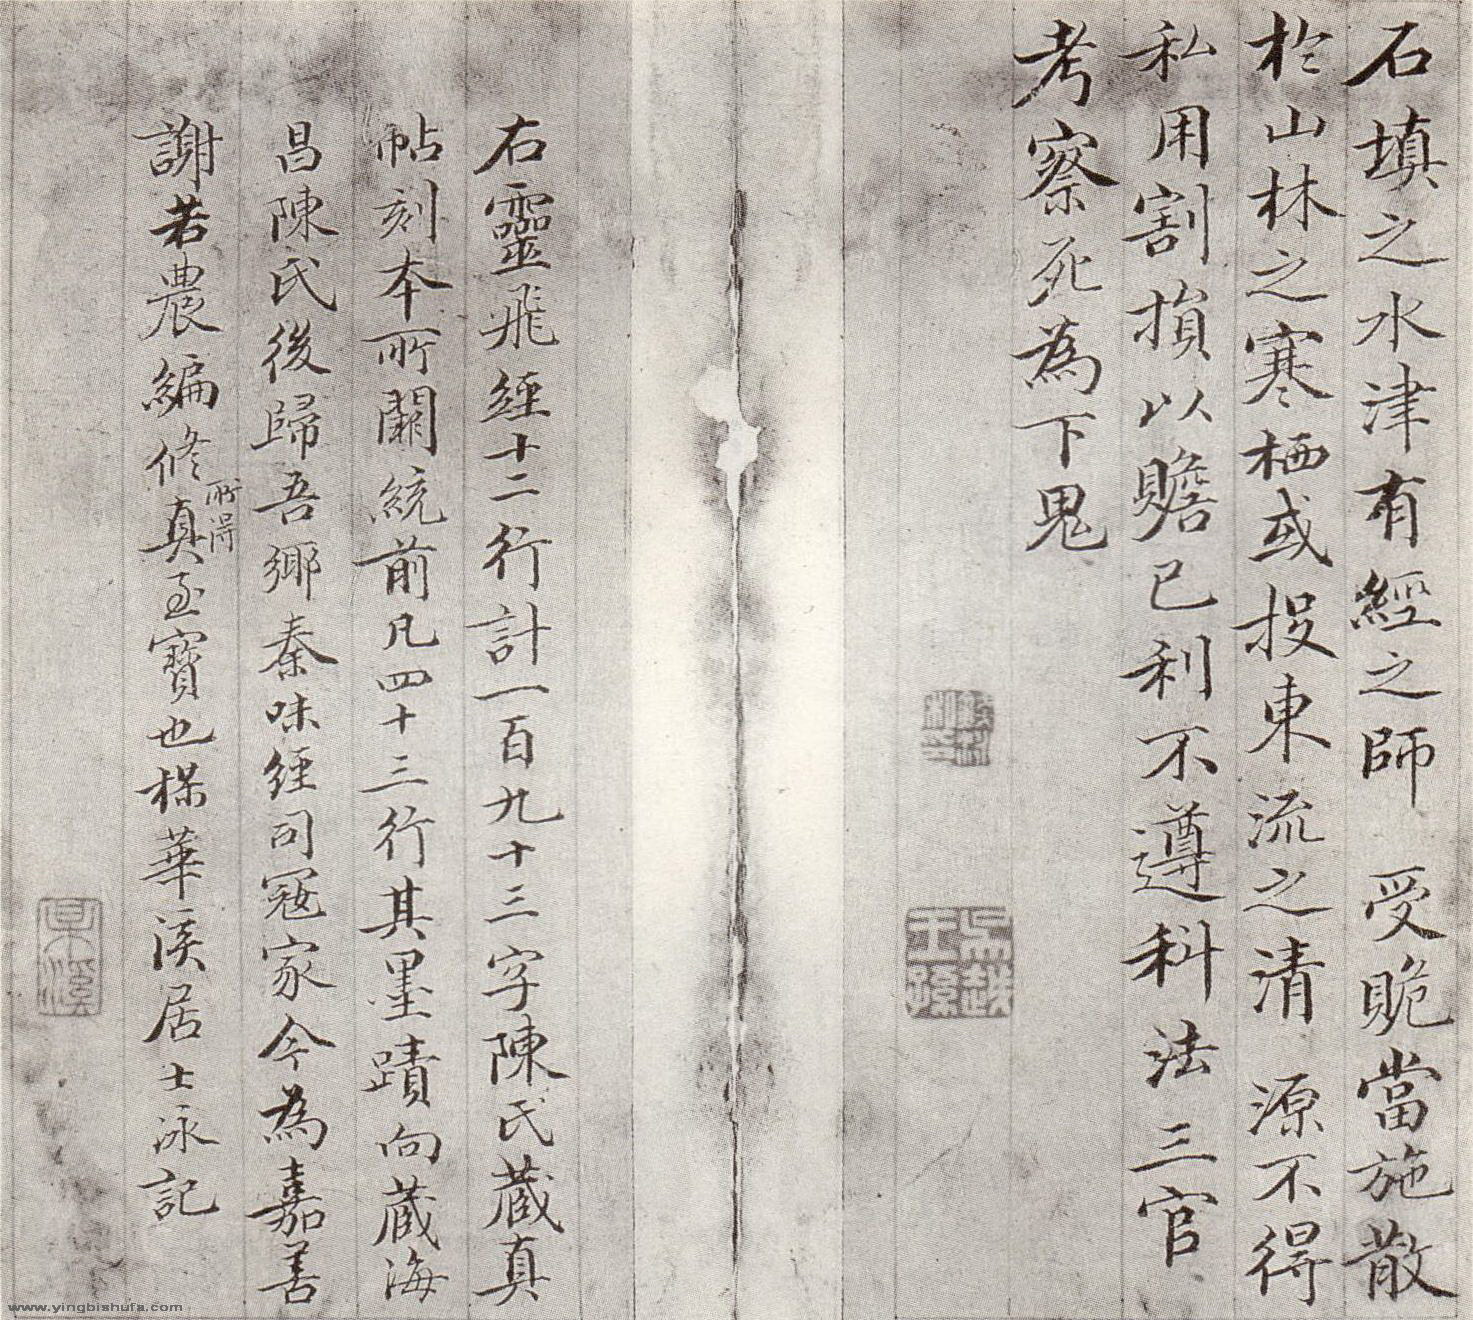 石填之水津有經之師 受賂當施散
於山林之寒栖或投東流之清 源不得
私用割損以贍己利不遵科法三官
考察死為下鬼
吳越王孫
右靈飛經十二行計一百九十三字陳氏藏真
帖刻本所闕統前凡四十三行其墨蹟向藏海
昌陳氏後歸吾鄉秦味經司寇家今為嘉善
謝若農編修所得真至寶也楳華溪居士泳記
www.yingbishufa.com